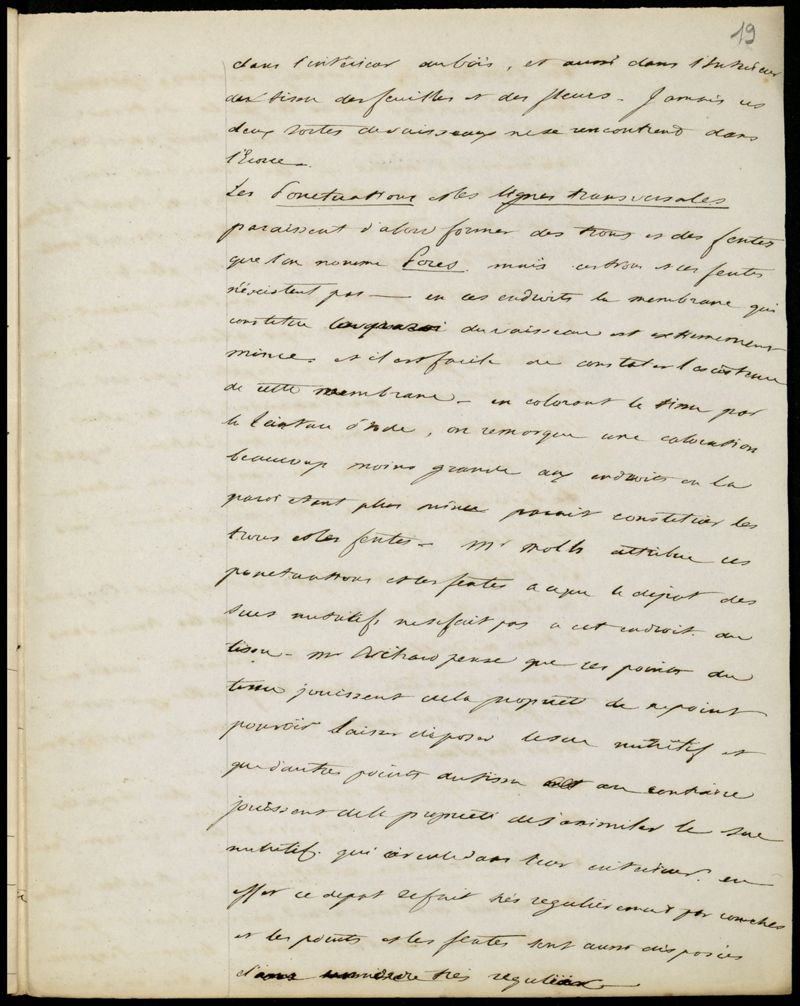 19
dans l'intérieur du bois, et aussi dans l'intérieur
du tissu des feuilles et des fleurs - Jamais ces
deux sortes de vaisseaux ne se rencontrent dans
l'Ecorce -
Les Ponctuations et les lignes transversales
paraissent d'abord former des trous et des fentes
que l'on nomme Pores. mais ces trous et ces fentes
n'existent pas — en ces endroits la membrane qui
constitue la paroi du vaisseau est extremement
mince - et il est facile de constater l'existence
de cette membrane - en colorant le tissu par
la teinture d'iode, on remarque une coloration
beaucoup moins grande aux endroits ou la
paroi etant plus mince parait constituer les
trous et les fentes - Mr Molh attribue ces
ponctuations et les fentes a ce que le dépot des
sucs nutritifs ne se fait pas a cet endroit du
tissu - Mr Richard pense que ces points du
tissu jouissent de la propriété de ne point
pouvoir laisser disposer le suc nutritif et
que d'autres points du tissu au contraire
jouissent de la propriété de s'assimiler le suc
nutritif. qui circule dans leur intérieur. en
effet ce depot se fait très regulierement par couches
et les points et les fentes sont aussi disposées
d'une manière très regulière -